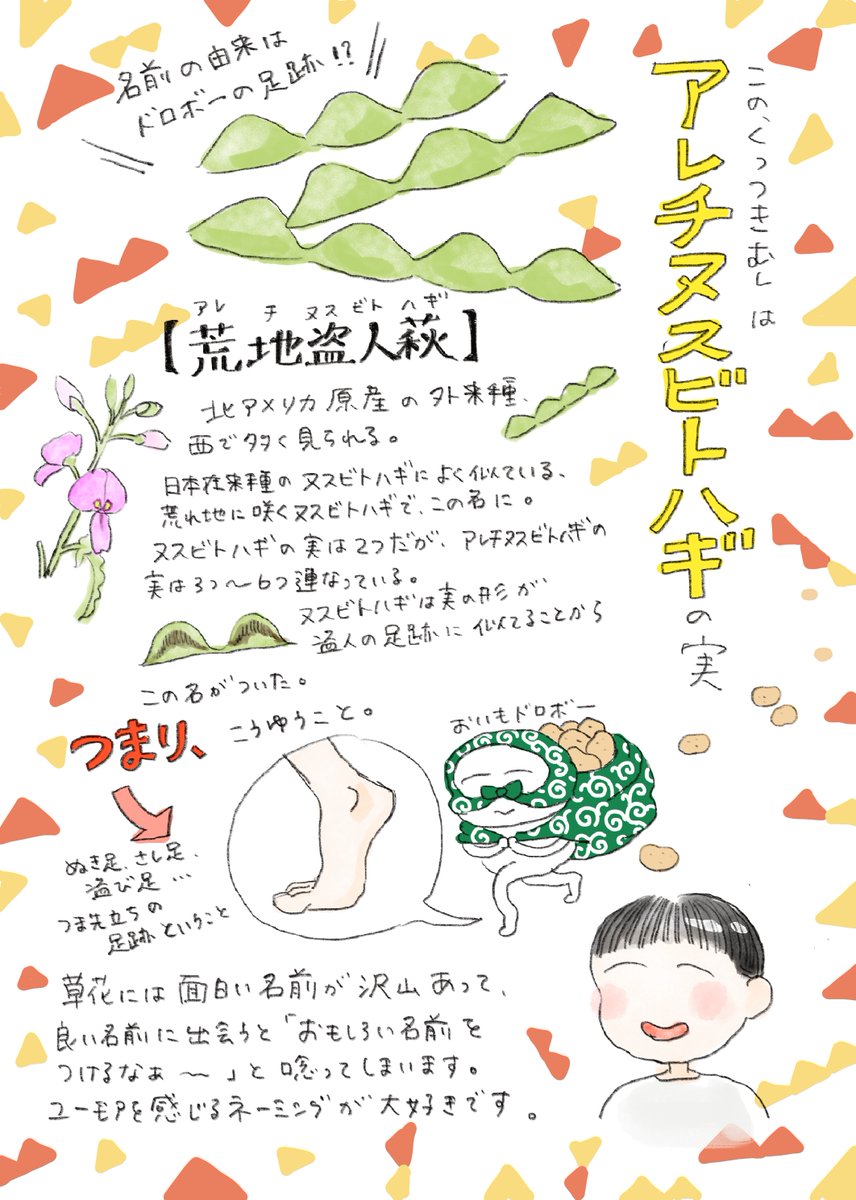 この、くっつきむしは
アレチヌスビトハギの実
名前の由来は
ドロボーの足跡!?
アレ チ ヌス ビト ハギ
【荒地盗人萩】
北アメリカ原産の外来種、
西で多く見られる。
日本在来種のヌスビトハギによく似ている、
荒れ地に咲くヌスビトハギで、この名に。
ヌスビトハギの実は2つだが、アレチヌスビトハギの
実は3つ〜6つ連なっている。
ヌスビトハギは実の形が
盗人の足跡に似てることから
この名がついた。
つまり、こうゆうこと。
おいもドロボー
ぬき足、さし足、
盗び足…
つま先立ちの
足跡ということ
草花には面白い名前が沢山あって、
良い名前に出会うと「おもしろい名前を
つけるなぁ〜」と唸ってしまいます。
ユーモアを感じるネーミングが大好きです。